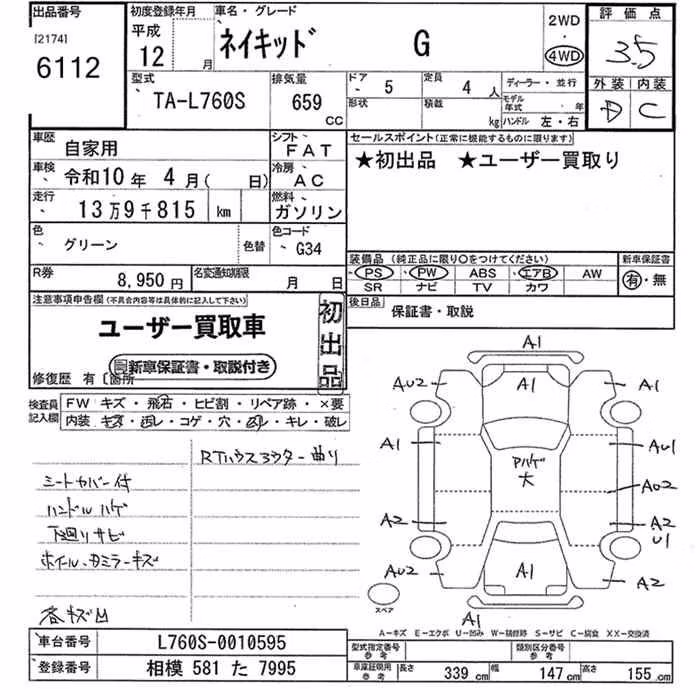 出品番号 初度登録年月 車名・グレード 2WD 評価点
[2174] 平成 ・
6112 12 月 ネイキッド G 4WD 3.5
型式 排気量 ドア 5 定員 4 人 ディーラー・並行 外装 内装
TA-L760S 659 CC 形状 積載 kg モデル年式 年 D C
ハンドル 左・右
車歴 自家用 シフト FAT セールスポイント(正常に機能するものに限ります)
車検 令和10年 4月( 日) 冷房 AC ★初出品 ★ユーザー買取り
走行 13万9千815 km 燃料 ガソリン
色 グリーン 色替 色コード G34
装備品(純正品に限り○をつけてください) 新車保証書
R券 8,950円 名変通知期限 月 日 PS PW ABS エアB AW 有・無
SR ナビ TV カワ
注意事項申告欄(不具合内容等は具体的に記入して下さい) 初出品 後日品 保証書・取説
ユーザー買取車
新車保証書・取説付き
修復歴 有 [箇所
検査員記入欄 FW キズ・飛石・ヒビ割・リペア跡・×要
内装・キズ・汚レ・コゲ・穴・凹・キレ・破レ
RTハウスアウター曲り
シートカバー付
ハンドルハゲ
下廻りサビ
ホイール、カミラーキズ
各キズ凹
A1
AU2 A1 A1
A1 AU1
アハゲ
大 AU2
A2 A2
U1
AU2 A1 A2
スペア A1
A-キズ E-エクボ U-凹み W-補修跡 S-サビ C-腐食 XX-交換済
車台番号 L760S-0010595 型式指定番号 参考 類別区分番号 参考
登録番号 相模 581 た 7995 車庫証明用参考 長さ 339 cm 幅 147 cm 高さ 155 cm